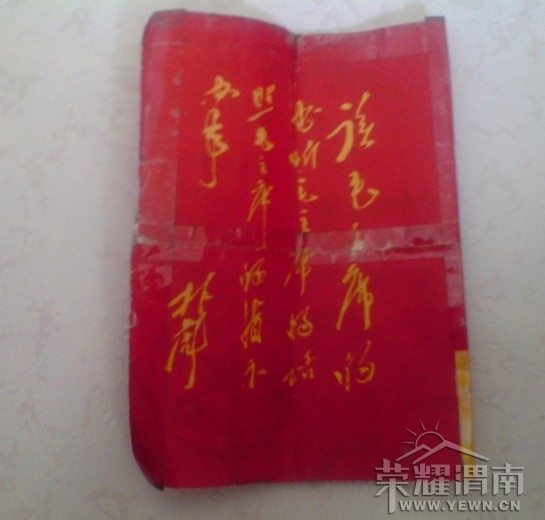 读毛主席的
书听毛主席的话
照毛主席的指示
办事
林彪
荣耀渭南
WWW.YEWN.CN